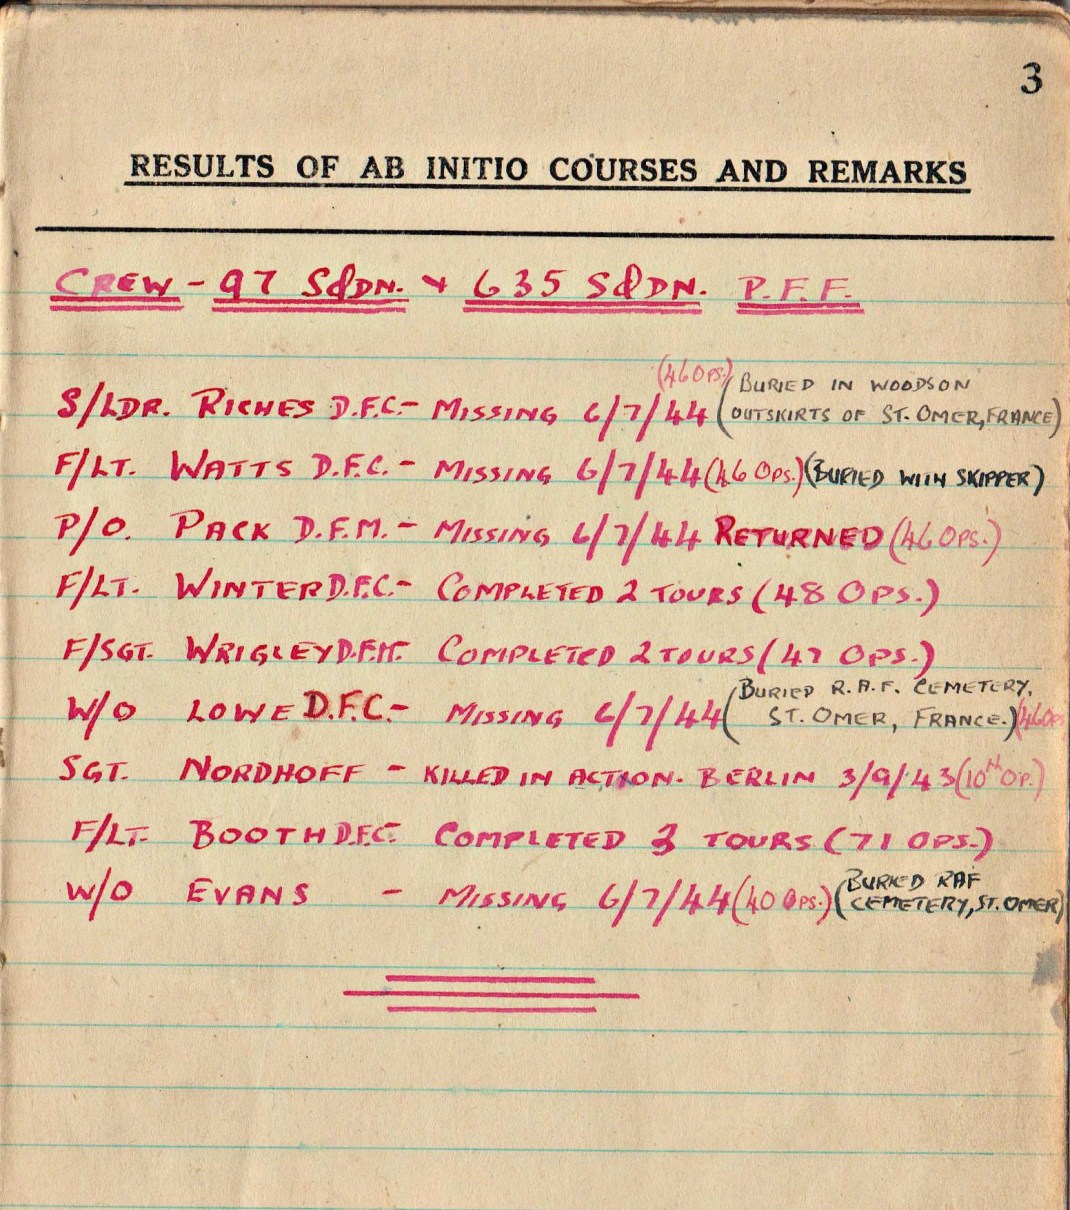 3
RESULTS OF AB INITIO COURSES AND REMARKS
CREW - 97 SQDN. + 635 SQDN. P.F.F.
S/LDR. RICHES D.F.C. - MISSING 6/7/44 (46 OPS.) (BURIED IN WOODS ON
OUTSKIRTS OF ST. OMER, FRANCE)
F/LT. WATTS D.F.C. - MISSING 6/7/44 (46 OPS.) (BURIED WITH SKIPPER)
P/O. PACK D.F.M. - MISSING 6/7/44 RETURNED (46 OPS.)
F/LT. WINTER D.F.C. - COMPLETED 2 TOURS (48 OPS.)
F/SGT. WRIGLEY D.F.M. COMPLETED 2 TOURS (47 OPS.)
W/O LOWE D.F.C. - MISSING 6/7/44 (BURIED R.A.F. CEMETERY,
ST. OMER, FRANCE.) (46 OPS
SGT. NORDHOFF - KILLED IN ACTION. BERLIN 3/9/43 (10TH OP.)
F/LT. BOOTH D.F.C. COMPLETED 3 TOURS (71 OPS.)
W/O EVANS - MISSING 6/7/44 (40 OPS.) (BURIED RAF
CEMETERY, ST. OMER)